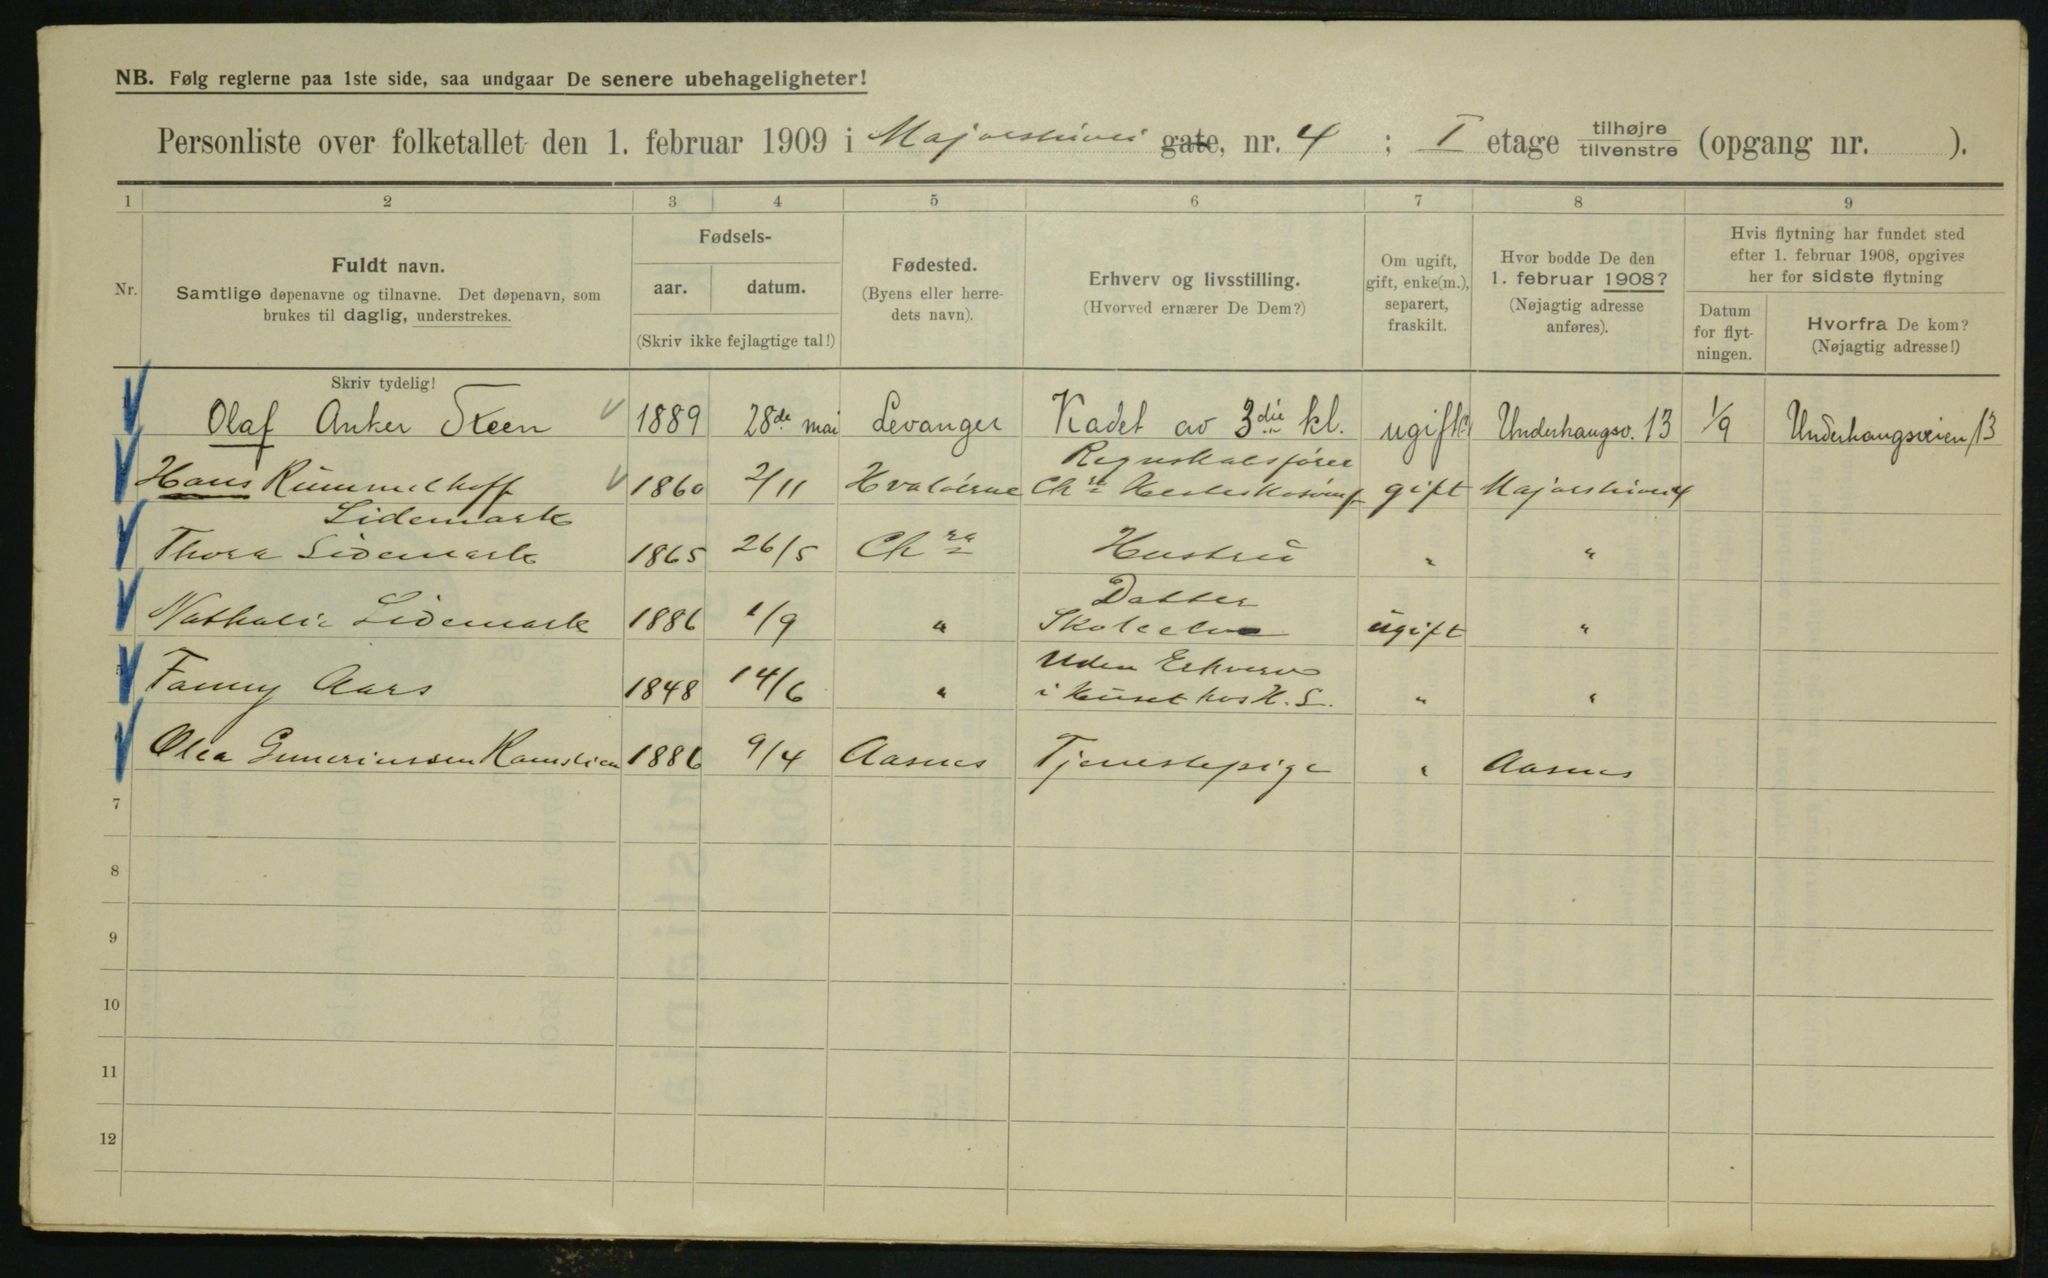 NB. Følg reglerne paa 1ste side, saa undgaar De senere ubehageligheter!
Personliste over folketallet den 1. februar 1909 i Majorstuvei gate, nr. 4 ; I etage tilhøjre tilvenstre (opgang nr. ).
1 2 3 4 5 6 7 8 9
Nr.
Fuldt navn.
Samtlige døpenavne og tilnavne. Det døpenavn, som
brukes til daglig, understrekes.
Skriv tydelig!
Fødsels-
aar. datum.
(Skriv ikke fejlagtige tal!)
Fødested.
(Byens eller herre-
dets navn).
Erhverv og livsstilling.
(Hvorved ernærer De Dem?)
Om ugift,
gift, enke(m.),
separert,
fraskilt.
Hvor bodde De den
1. februar 1908?
(Nøjagtig adresse
anføres).
Hvis flytning har fundet sted
efter 1. februar 1908, opgives
her for sidste flytning
Datum
for flyt-
ningen.
Hvorfra De kom?
(Nøjagtig adresse!)
Olaf Anker Steen 1889 28de mai Levanger Kadet av 3die kl. ugift Underhaugsv. 13 1/9 Underhaugsveien 13
Hans Rummelhoff Lidemark 1860 2/11 Hvaløerne Regnskabsfører Chr gift Majorstuvei 4
Thora Lidemark 1865 26/5 Chra Hustru " "
Nathalie Lidemark 1886 1/9 " Datter Skoleelev ugift "
5 Fanny Aars 1848 14/6 " Uden Erhverv i Huset hos H. L. " "
Olea Guneriussen 1886 9/4 Aasnes Tjenestepige " Aasnes
7
8
9
10
11
12